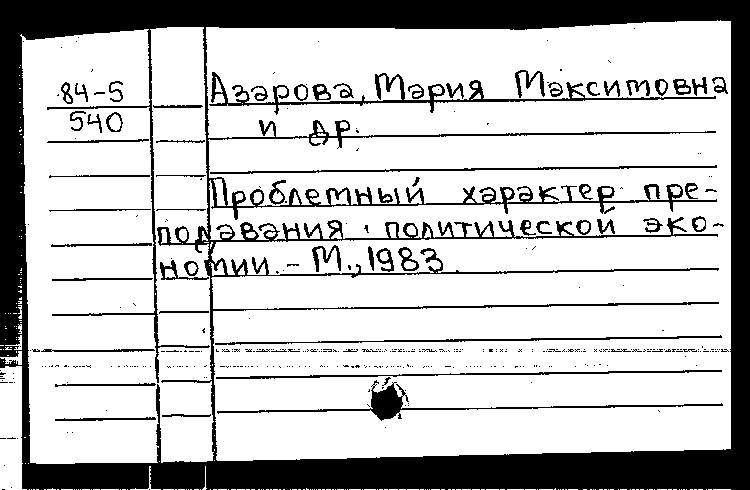 84-5 Азарова, Мария Максимовна
540 и др.
Проблемный характер пре-
подавания политической эко-
номии. - М., 1983.